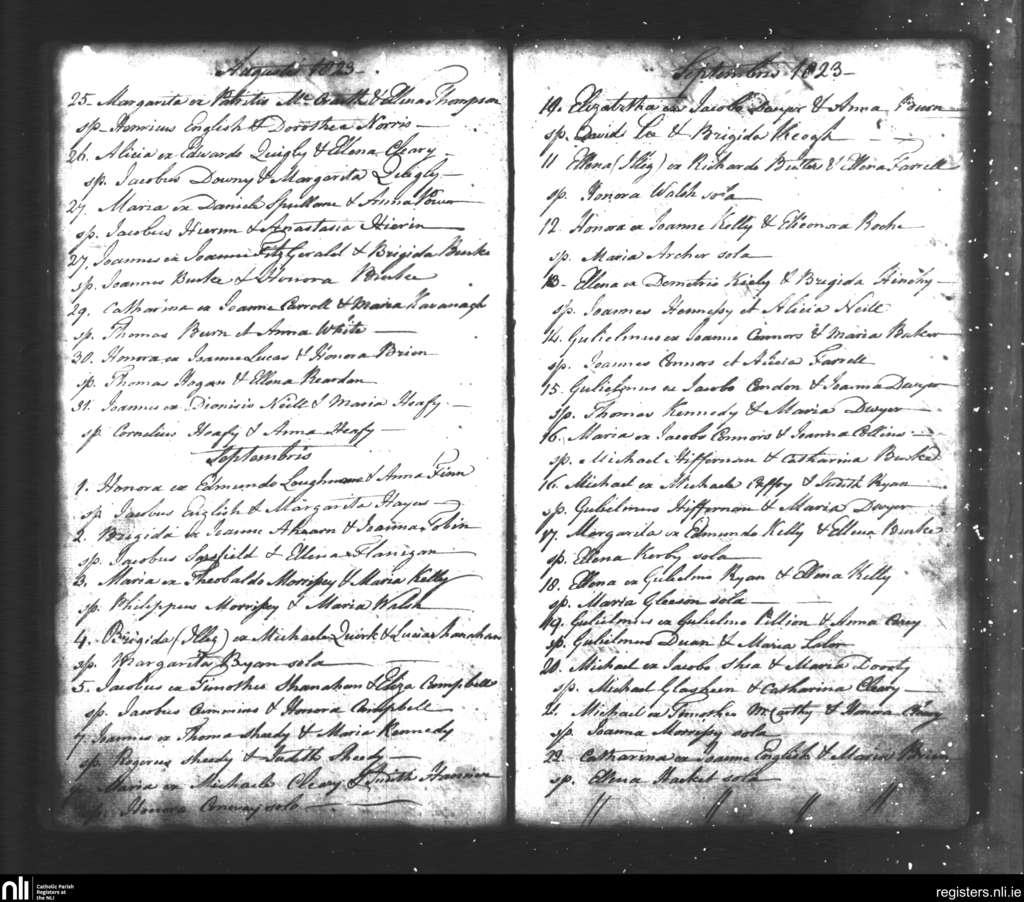 Augusti 1823
25. Margarita ex Patritio McCraith & Ellena Thompson
sp. Henricus English & Dorothea Norris
26. Alicia ex Edwardo Quigly & Ellena Cleary
sp. Jacobus Downy & Margarita Quigly
27. Maria ex Daniele Spillane & Anna Power
sp. Jacobus Hieron & Anastasia Hieron
27. Joannes ex Joanne FitzGerald & Brigida Burke
sp. Joannes Burke & Honora Burke
29. Catharina ex Joanne Carroll & Maria Kavanagh
sp. Thomas Burn et Anna White
30. Honora ex Joanne Lucas & Honora Brien
sp. Thomas Hogan & Ellena Reardon
31. Joannes ex Dionisio Neill & Maria Heafy
sp. Cornelius Heafy & Anna Heafy
Septembris
1. Honora ex Edmundo Loughnane & Anna Finn
sp. Jacobus English & Margarita Hayes
2. Brigida ex Joanne Ahearn & Joanna Tobin
sp. Jacobus Sarsfield & Ellena Flanigan
3. Maria ex Theobaldo Morrissey & Maria Kelly
sp. Philippus Morrissey & Maria Walsh
4. Brigida (Illeg) ex Michaele Quirk & Lucia Shanahan
sp. Margarita Ryan sola
5. Jacobus ex Timotheo Shanahan & Eliza Campbell
sp. Jacobus Cummins & Honora Campbell
7. Joannes ex Thoma Sheedy & Maria Kennedy
sp. Rogerus Sheedy & Judith Sheedy
Maria ex Michaele Cleary & Judith
sp. Honora Conway sola
Septembris 1823
10. Elizabetha ex Jacobo Dwyer & Anna Burn
sp. David Lee & Brigida Keogh
11 Ellena (Illeg) ex Richardo Butler & Ellena Farrell
sp. Honora Walsh sola
12. Honora ex Joanne Kelly & Elleonora Roche
sp. Maria Archer sola
13. Ellena ex Demetrio Kiely & Brigida Hinchy
sp. Joannes Hennessy et Alicia Neill
14. Gulielmus ex Joanne Connors & Maria Baker
sp. Joannes Connors et Alicia Farrell
15. Gulielmus ex Jacobo Condon & Joanna Dwyer
sp. Thomas Kennedy & Maria Dwyer
16. Maria ex Jacobo Connors & Joanna Collins
sp. Michael Hiffernan & Catharina Burke
16. Michael ex Michaele & Judith Ryan
sp. Gulielmus Hiffernan & Maria Dwyer
17. Margarita ex Edmundo Kelly & Ellena Burke
sp. Ellena Kerby sola
18. Ellena ex Gulielmo Ryan & Ellena Kelly
sp. Maria Gleeson sola
19. Gulielmus ex Gulielmo & Anna Carey
sp. Gulielmus Duan & Maria Lalor
20. Michael ex Jacobo Shea & Maria Doorly
sp. Michael Glasheen & Catharina Cleary
21. Michael ex Timotheo McCarthy & Honora
sp. Joanna Morrissy sola
22. Catharina ex Joanne English & Maria Brien
sp. Ellena Hacket sola
nli
Catholic Parish
Registers at
the NLI
registers.nli.ie